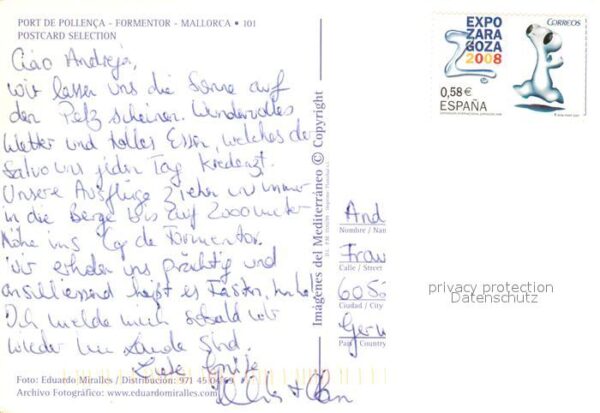 PORT DE POLLENÇA - FORMENTOR - MALLORCA • 101
POSTCARD SELECTION
Ciao Andreja,
wir lassen uns die Sonne auf
den Pelz scheinen. Wundervolles
Wetter und tolles Essen, welches der
Salvo uns jeden Tag kredenzt.
Unsere Ausflüge ziehen uns immer
in die Berge bis auf 2000 meter
Höhe ins Cap de Formentor.
Wir erholen uns prächtig und
anschliessend heißt es Fasten,
Ich melde mich sobald wir
wieder im Lande sind.
Liebe Grüße
Foto: Eduardo Miralles / Distribución: 971 45 04 69
Archivo Fotográfico: www.eduardomiralles.com
Imágenes del Mediterráneo © Copyright
EXPO
ZARA
GOZA
2008
CORREOS
0,58 €
ESPAÑA
And
Nombre / Nam
Frau
Calle / Street
605
Ciudad / City
Germ
País / Country
privacy protection
Datenschutz